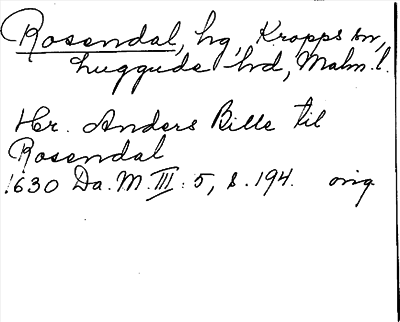 Rosendal, hg, Kropps sn,
Luggude hd, Malm. l.
Hr. Anders Bille til
Rosendal
1630 Da. M. III. 5, s. 194. orig